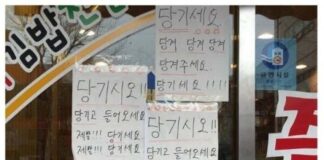 김밥천
당기세요.
당겨 당겨 당겨
당겨주세요.
당기세요!!!!
금연시설
당기시오!!
당기고 들어오세요
제발!!! 당기세요.
제발!!! 당기세요.
당기시오!!
당기고 들어오세요